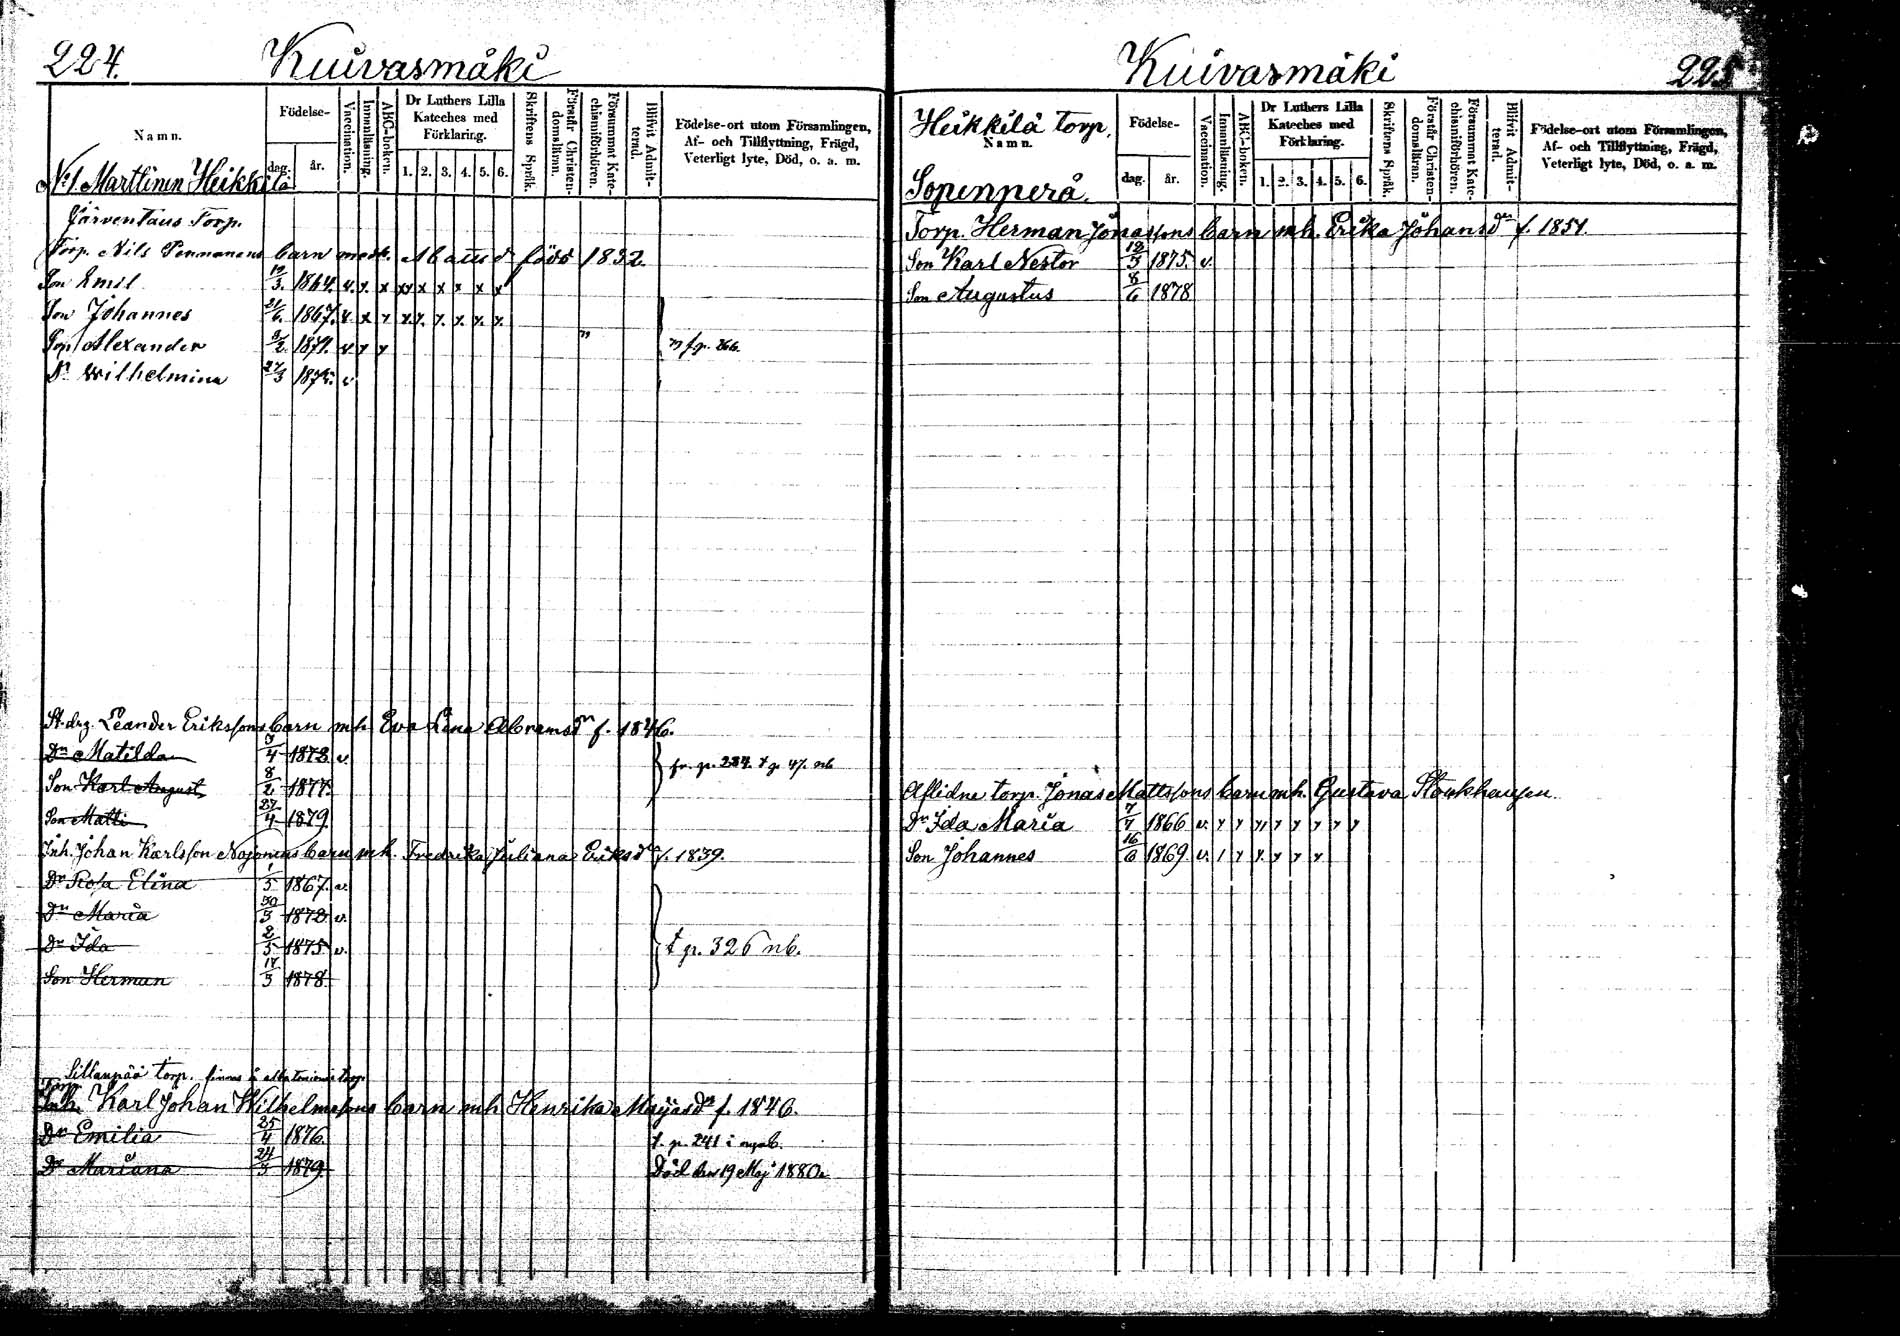 224. Kuivasmäki
Namn.
Födelse-
dag. år.
Vaccination.
Innanläsning.
ABC-boken.
Dr Luthers Lilla Kateches med Förklaring.
1. 2. 3. 4. 5. 6.
Skriftens Språk.
Förstår Christendomsläran.
Försummat Katechismiförhören.
Blifvit Admitterad.
Födelse-ort utom Församlingen, Af- och Tillflyttning, Frägd, Veterligt lyte, Död, o. a. m.
No 1 Marttinen Heikkilä
Järventaus Torp.
Torp. Nils barn med född 1832.
Son Emil 3. 1864. v. x. x x x x x x x
Son Johannes 21/6. 1867. v. x x x x x x x x
Son Alexander 2. 1871. v x x " " f. p. 266.
Dr Wilhelmina 27/3 v
St.drg. Leander Erikssons barn mh Eva Lena Abramsdn f. 1846.
Dn Matilda /4 1872 v.
Son Karl August 8/2 1877. fr. p. 284. t p. 47. nb
Son Matti 27/4 1879.
Inh. Johan Karlsson barn mh. Fredrika Juliana Eriksdr f. 1839.
Dr Rosa Elina 1/5 1867. v.
Dn Maria 30/3 1872 v.
Dr Ida 2/5 1875 v. t p. 326 nb.
Son Herman 17/3 1878.
Sillanpää torp.
Torp.
Inh. Karl Johan Wilhelmssons barn mh Henrika f. 1846.
Dn Emilia 25/4 1876. t. p. 241 i nyab.
Dr Mariana 24/3 1879. Död den 19 Maj 1880
Kuivasmäki 225
Heikkilä torp.
Namn.
Sopenperä.
Födelse-
dag. år.
Vaccination.
Innanläsning.
ABC-boken.
Dr Luthers Lilla Kateches med Förklaring.
1. 2. 3. 4. 5. 6.
Skriftens Språk.
Förstår Christendomsläran.
Försummat Katechismiförhören.
Blifvit Admitterad.
Födelse-ort utom Församlingen, Af- och Tillflyttning, Frägd, Veterligt lyte, Död, o. a. m.
Torp. Herman Jonassons barn mh. Erika Johansdn f. 1851.
Son Karl Nestor 12/3 1875. v.
Son Augustus 8/6 1878
Aflidne torp. Jonas Mattssons barn mh. Gustava Stockhausen
Dr Ida Maria 7/7 1866 v. x x x x x x x x
Son Johannes 16/6 1869. v. x x x x x